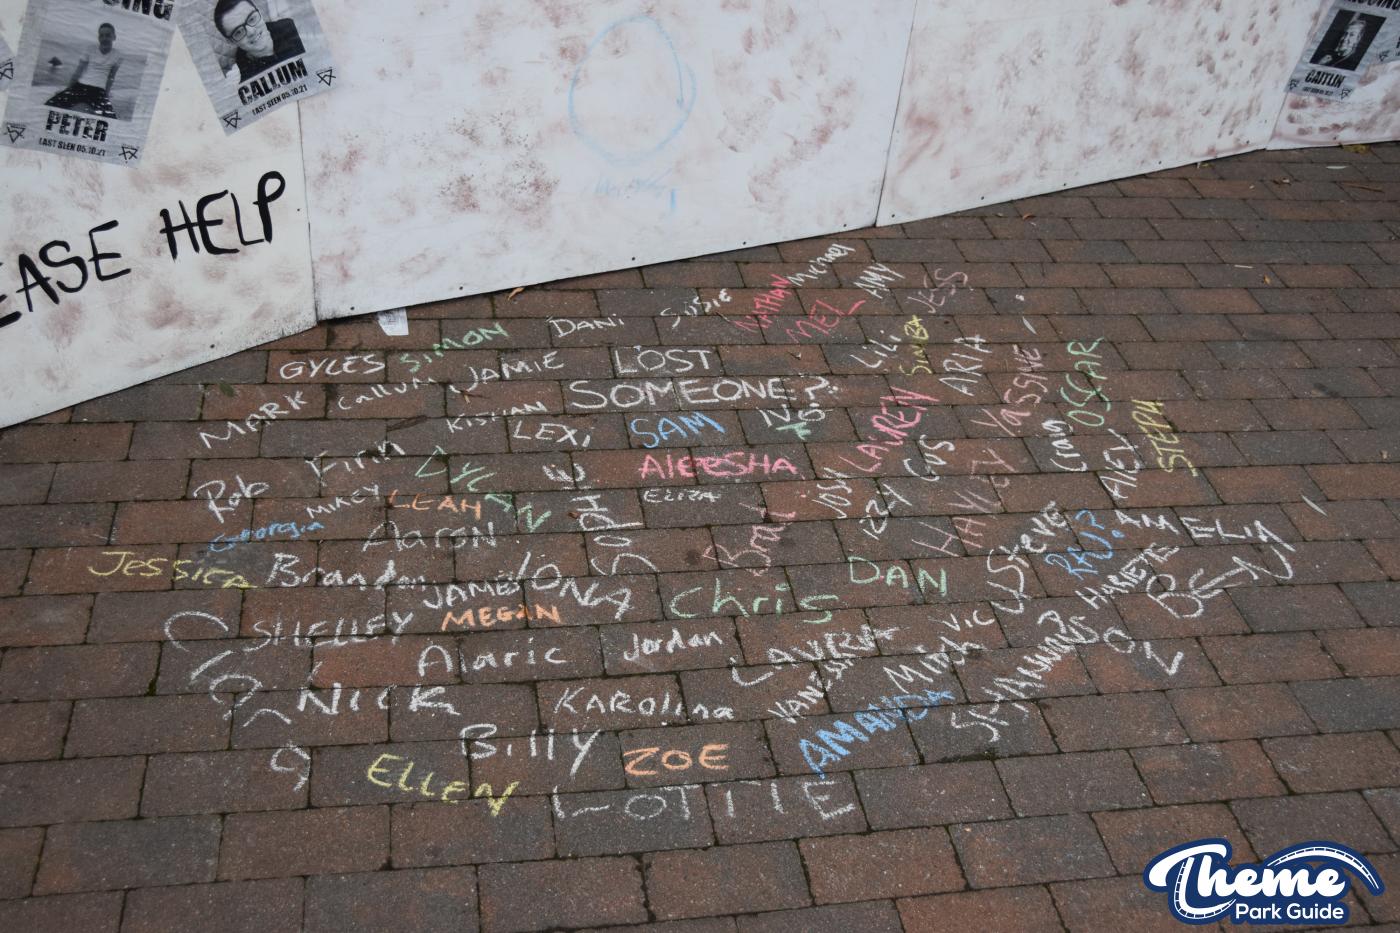 PETER
LAST SEEN 05.10.21
CALLUM
LAST SEEN 05.10.21
CAITLIN
EASE HELP
SUSIE
NATHAN
Michael
AMY
JESS
MEL
DANI
SIMON
GYLES
JAMIE
LOST
SOMEONE?
LILI
SIMBA
ARIA
YaSSINE
OSCAR
STEPH
MARK
CALLUM
KISHAN
LEXI
SAM
LAIREN
GUS
Craig
ALEX
Finn
DYLAN
ALEESHA
ELIZA
Rob
MIACY
LEAH
SOPHIE
JOSH
IZZY
HAYLEY
Georgia
Aaron
Brad
Steve
RAJ?
AMELIA
JESSICA
Brandon
JAMES
IONA
DAN
HARIETE
BEN
MEGAN
Chris
SHELLEY
VIC
Alaric
Jordan
LAVERNA
Mitch
SHANNON
OZ
NICK
KAROLINA
VANESSA
AMANDA
Billy
ZOE
ELLEN
LOTTIE
Theme
Park Guide